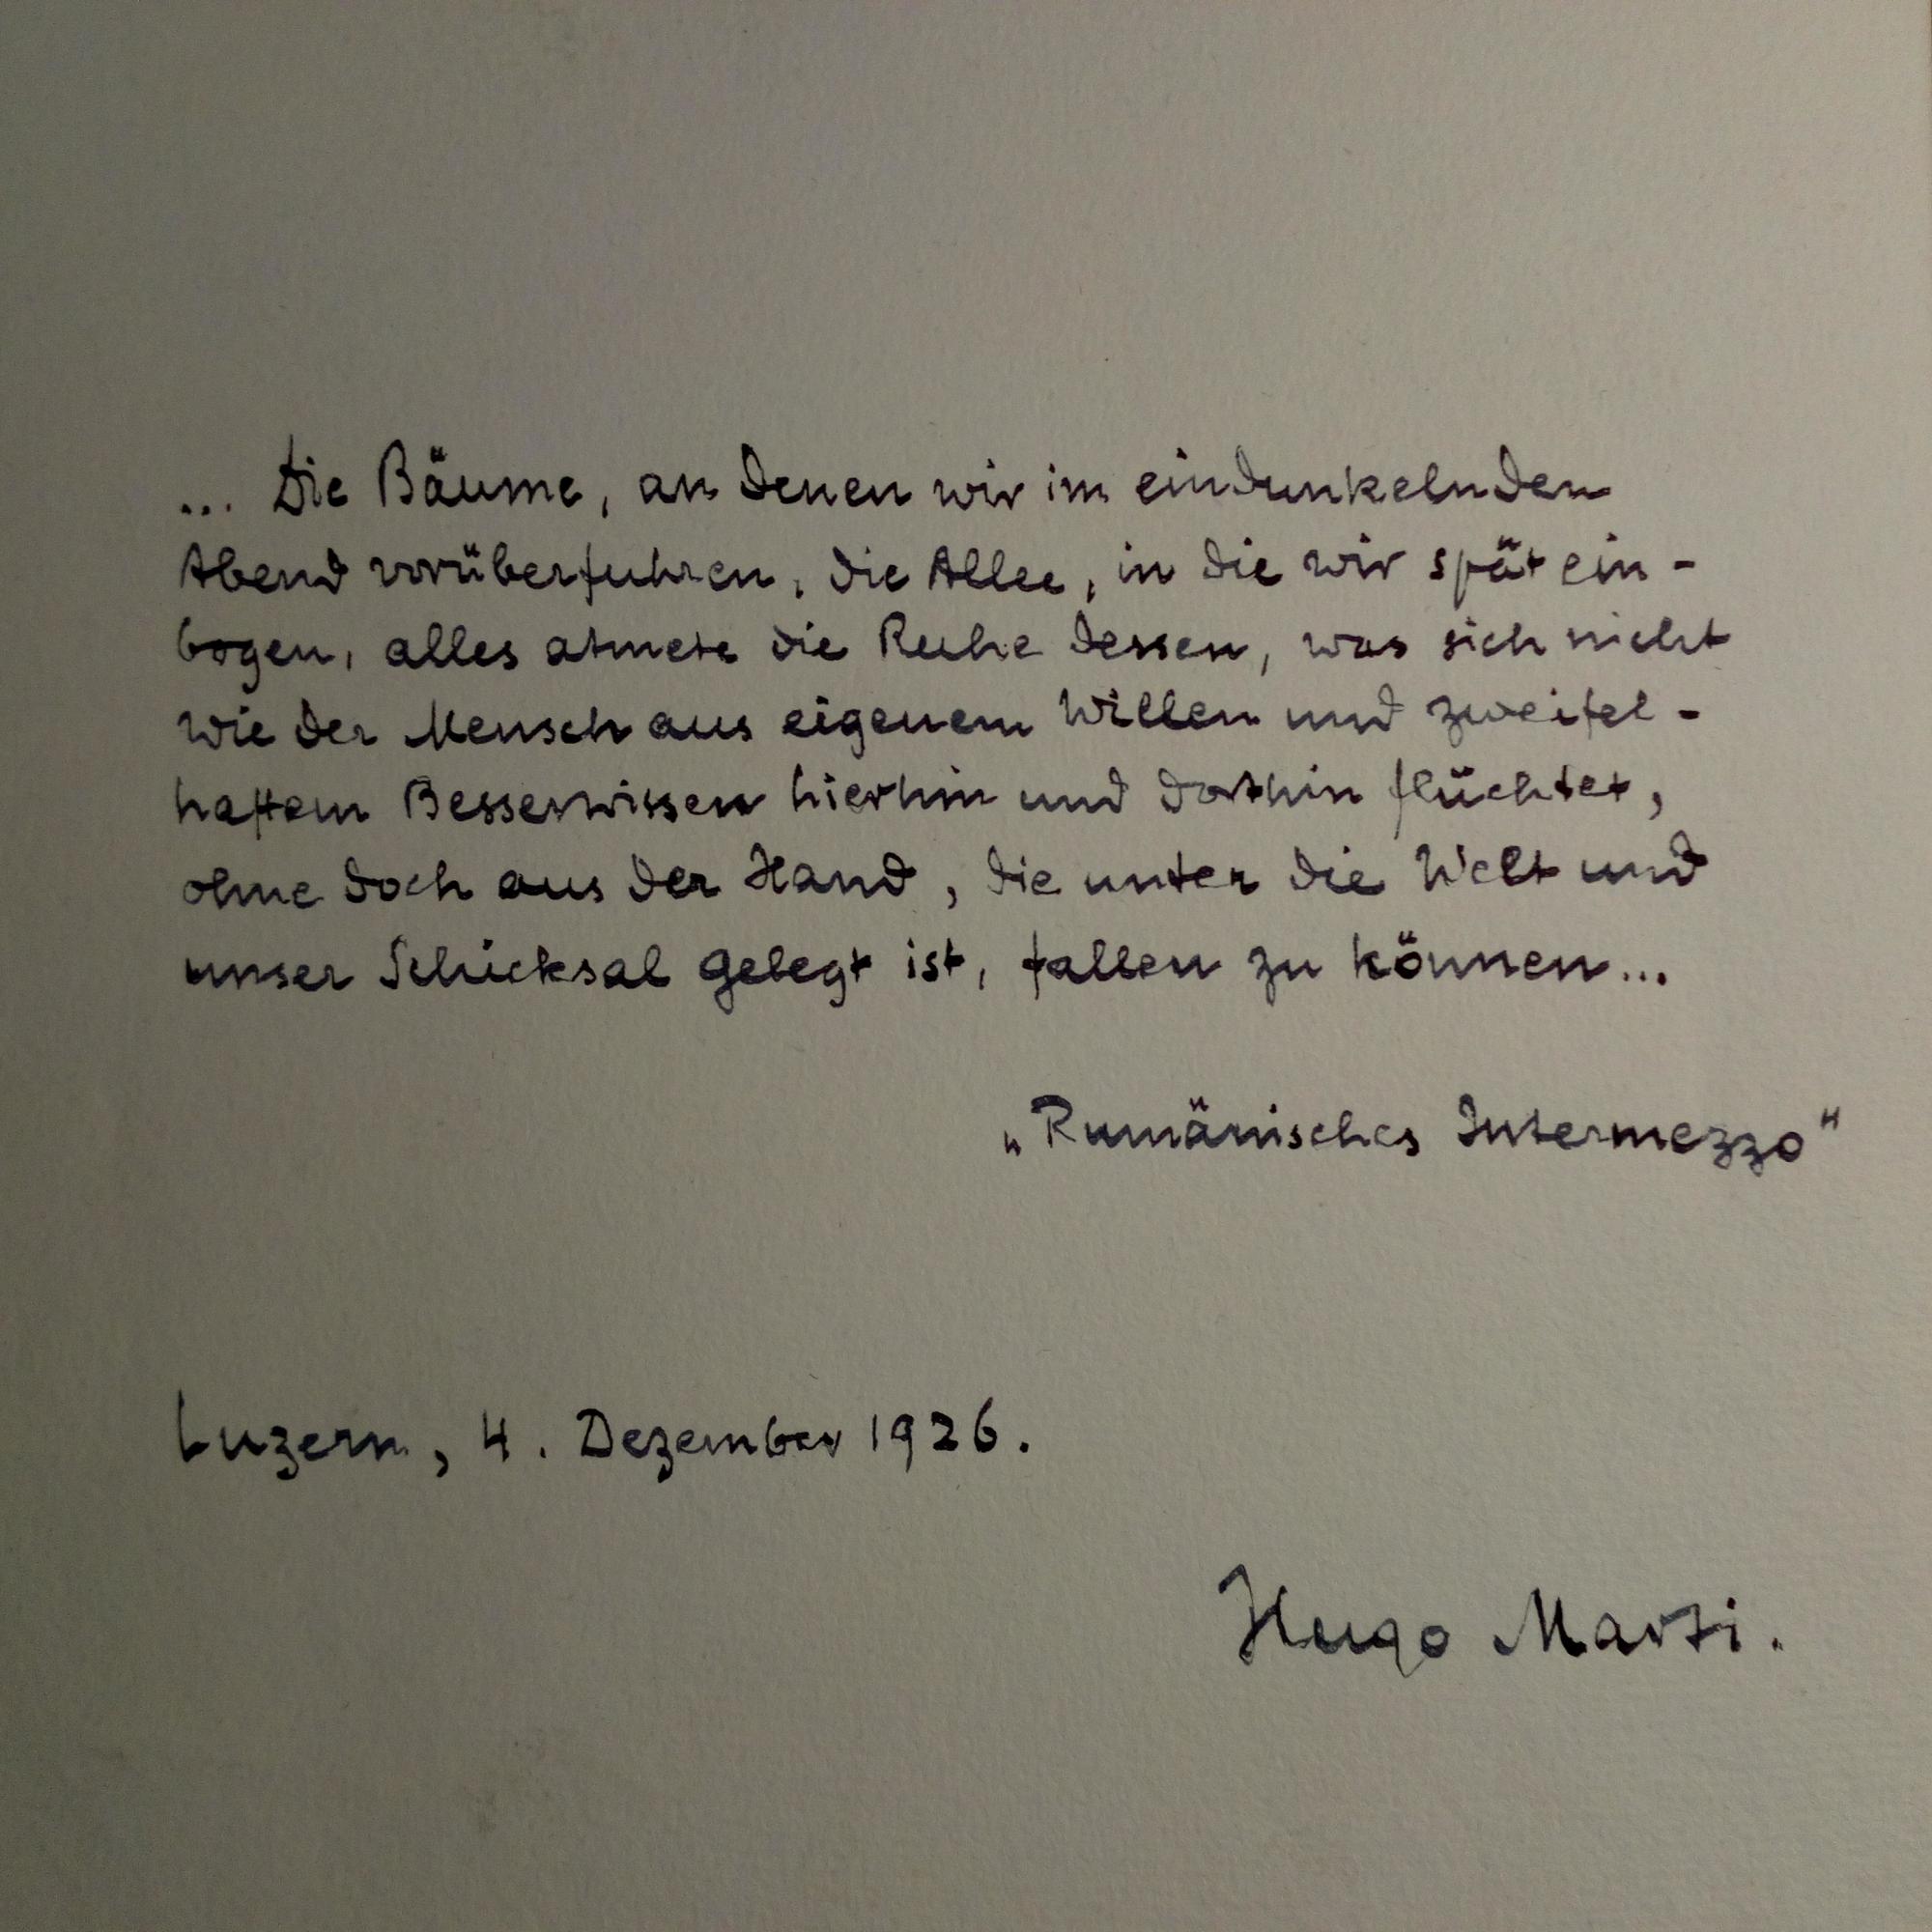 ... Die Bäume, an denen wir im eindunkelnden
Abend vorüberfuhren, die Allee, in die wir spät ein-
bogen, alles atmete die Ruhe dessen, was sich nicht
wie der Mensch aus eigenem Willen und zweifel-
haftem Besserwissen hierhin und dorthin flüchtet,
ohne doch aus der Hand, die unter die Welt und
unser Schicksal gelegt ist, fallen zu können...
„Rumänisches Intermezzo"
Luzern, 4. Dezember 1926.
Hugo Marti.